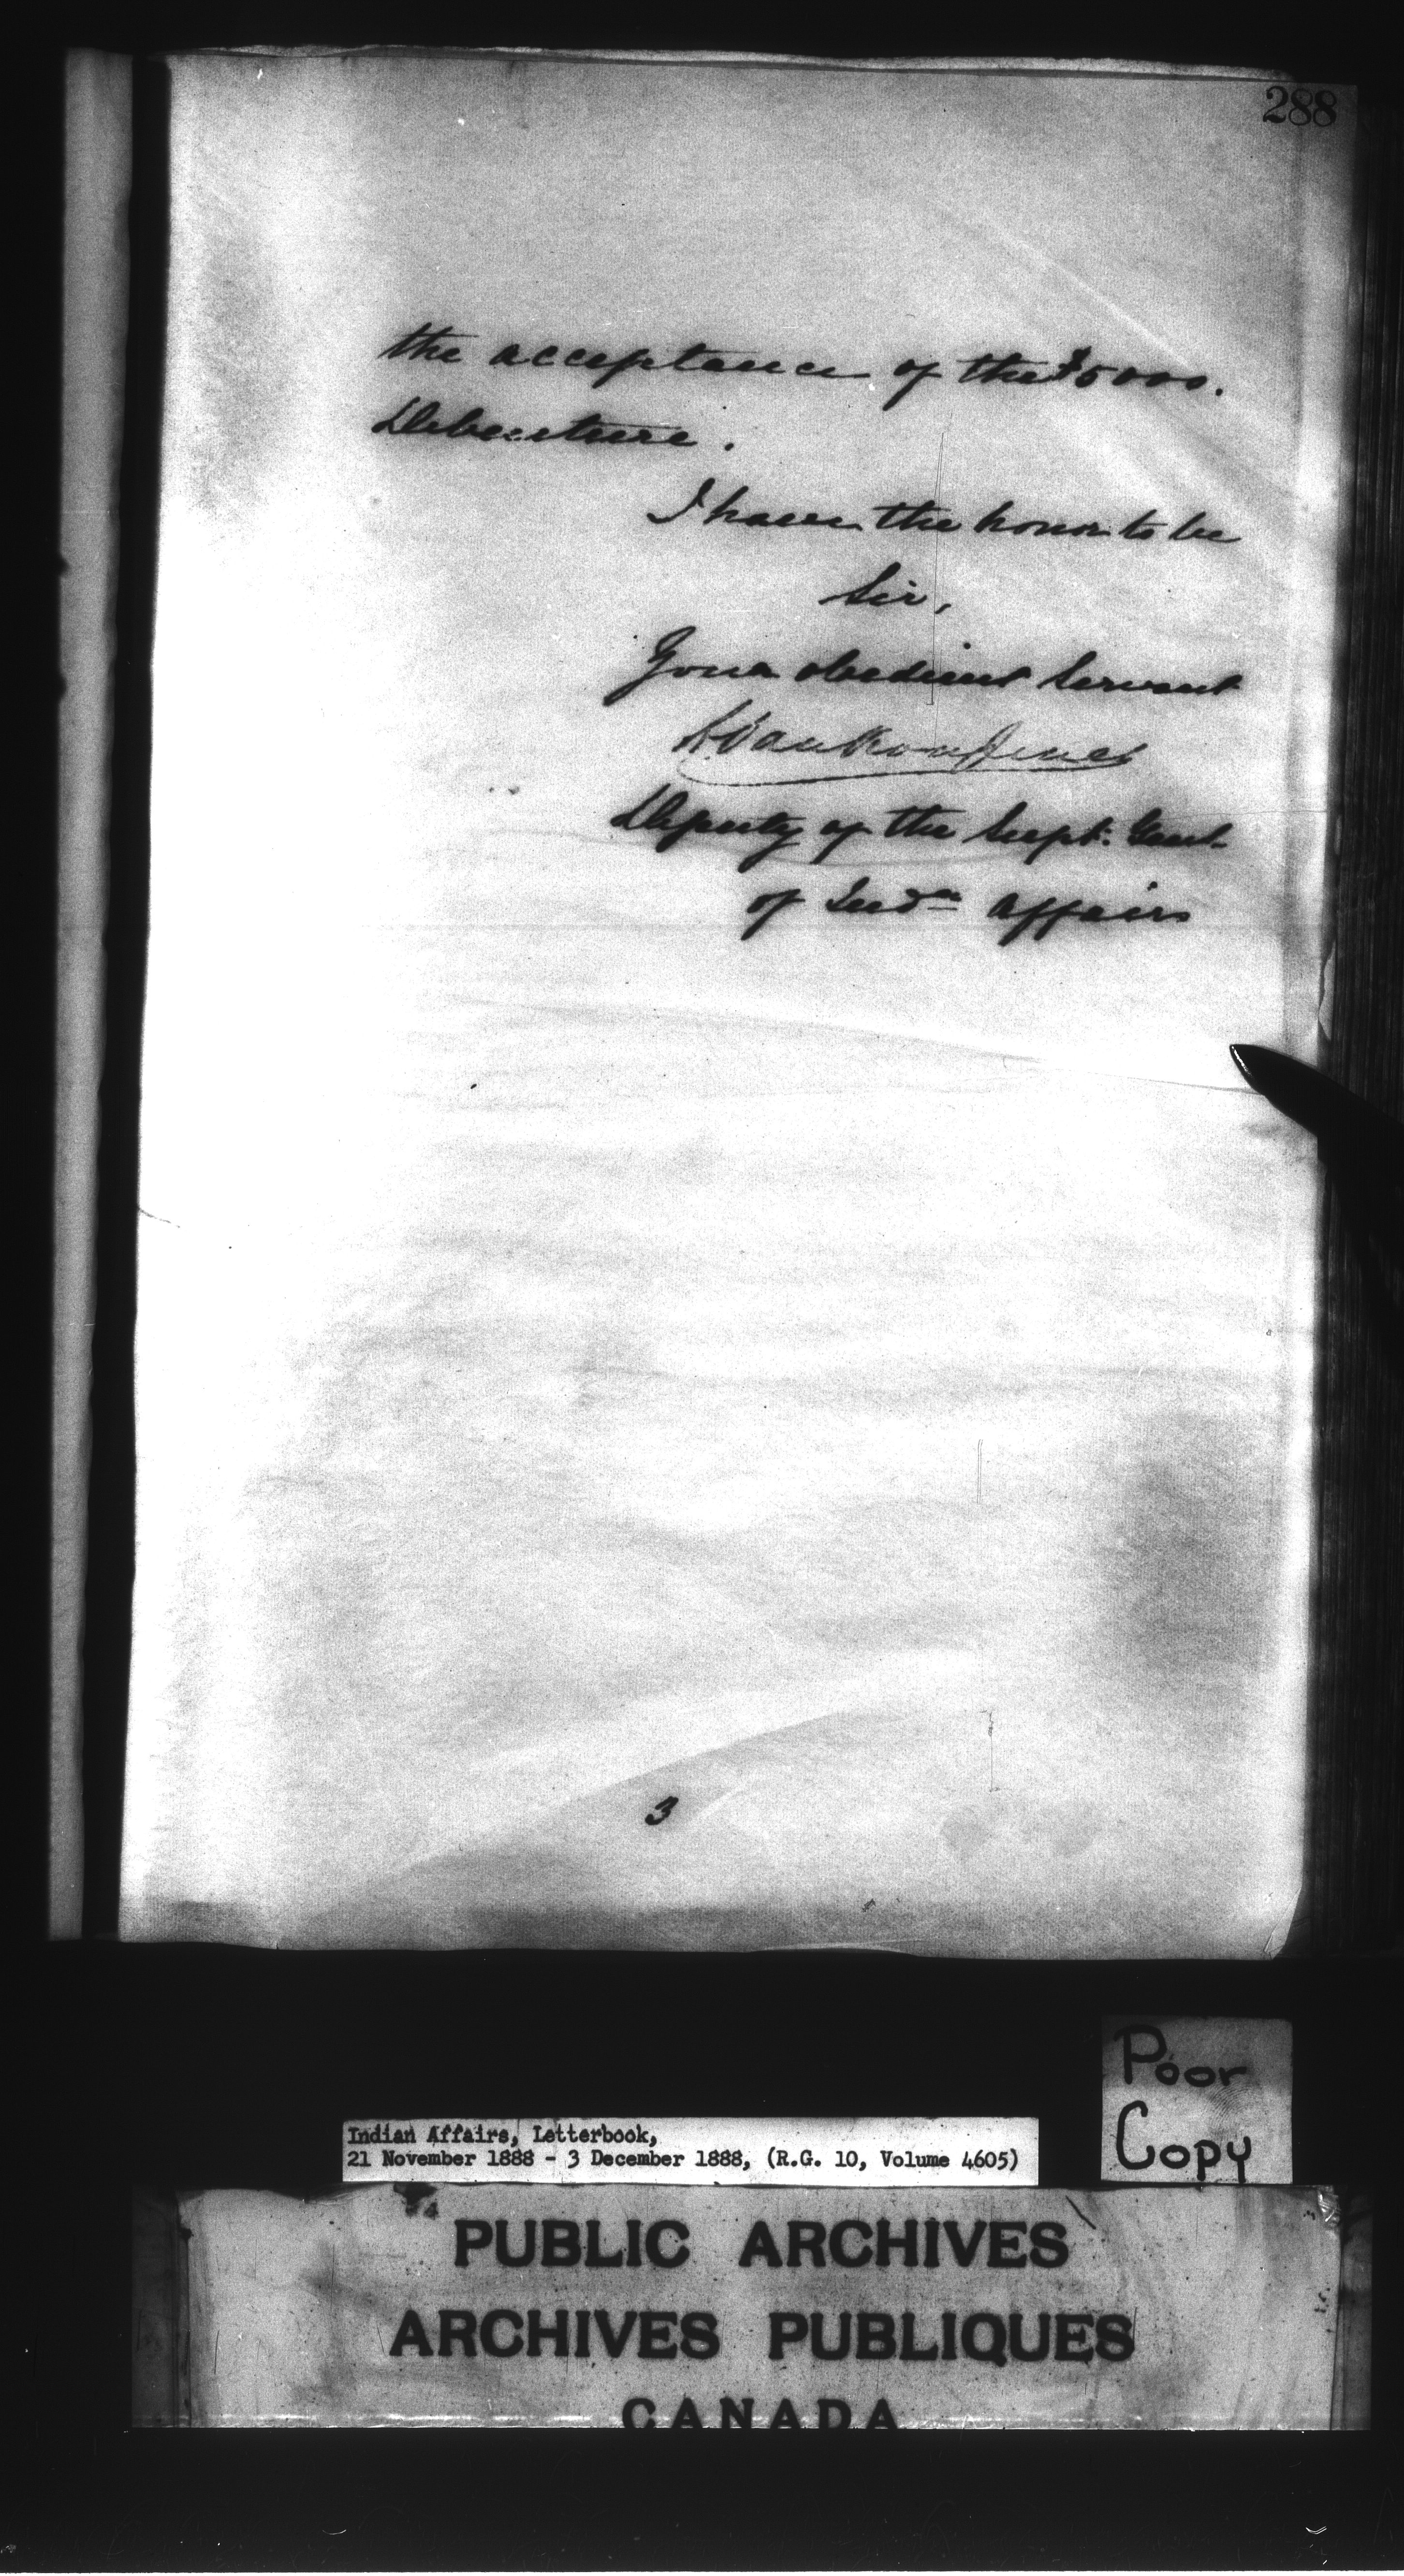 288
the acceptance of the $5000.
Debenture.
I have the honor to be
Sir,
Your obedient Servant
L. Vankoughnet
Deputy of the Supt: Genl.
of Indn Affairs
3
Poor
Copy
Indian Affairs, Letterbook,
21 November 1888 - 3 December 1888, (R.G. 10, Volume 4605)
PUBLIC ARCHIVES
ARCHIVES PUBLIQUES
CANADA